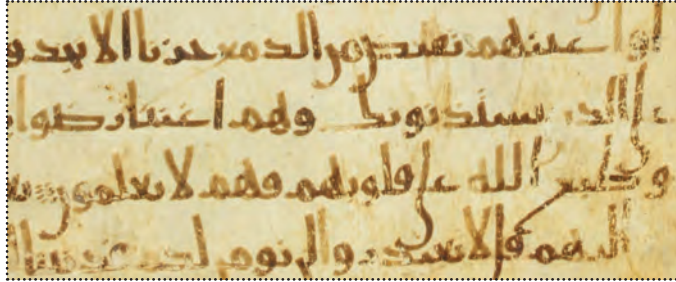 لوا و اعينهم تفيض من الدمع حزنا الا يجدو
على الذين يستذنونك وهم اغنيا رضوا با
وطبع الله على قلوبهم فهم لا يعلمون
اليهم قل لا تعتذروا لن نومن لكم قد نبانا